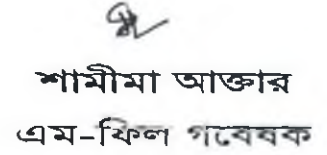 শামীমা আক্তার
এম-ফিল গবেষক